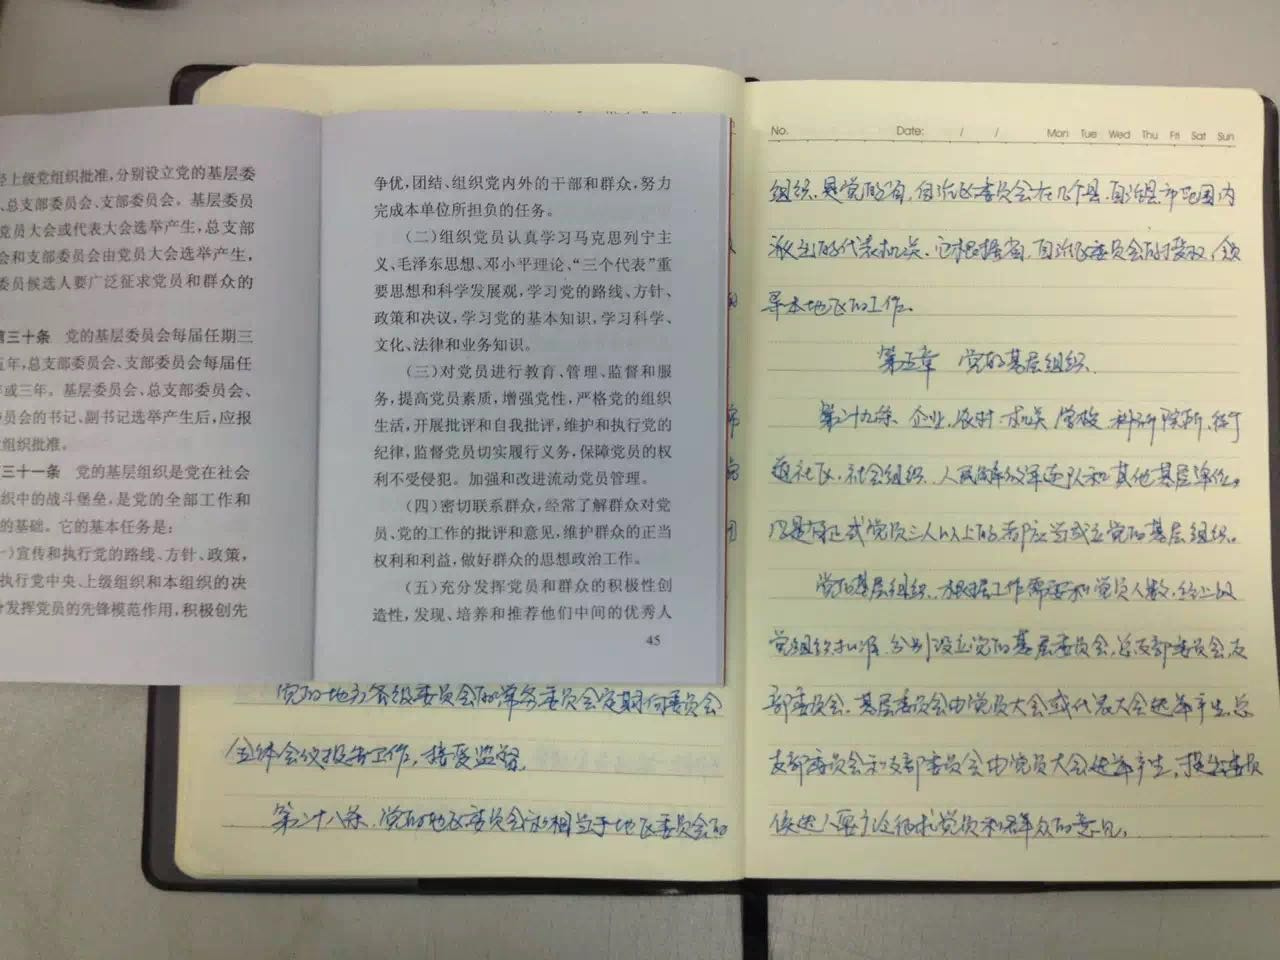 经上级党组织批准,分别设立党的基层委
、总支部委员会、支部委员会。基层委员
党员大会或代表大会选举产生,总支部
会和支部委员会由党员大会选举产生,
委员候选人要广泛征求党员和群众的
第三十条 党的基层委员会每届任期三
五年,总支部委员会、支部委员会每届任
年或三年。基层委员会、总支部委员会、
员会的书记、副书记选举产生后,应报
组织批准。
三十一条 党的基层组织是党在社会
织中的战斗堡垒,是党的全部工作和
的基础。它的基本任务是:
一)宣传和执行党的路线、方针、政策,
执行党中央、上级组织和本组织的决
分发挥党员的先锋模范作用,积极创先
争优,团结、组织党内外的干部和群众,努力
完成本单位所担负的任务。
(二)组织党员认真学习马克思列宁主
义、毛泽东思想、邓小平理论、“三个代表”重
要思想和科学发展观,学习党的路线、方针、
政策和决议,学习党的基本知识,学习科学、
文化、法律和业务知识。
(三)对党员进行教育、管理、监督和服
务,提高党员素质,增强党性,严格党的组织
生活,开展批评和自我批评,维护和执行党的
纪律,监督党员切实履行义务,保障党员的权
利不受侵犯。加强和改进流动党员管理。
(四)密切联系群众,经常了解群众对党
员、党的工作的批评和意见,维护群众的正当
权利和利益,做好群众的思想政治工作。
(五)充分发挥党员和群众的积极性创
造性,发现、培养和推荐他们中间的优秀人
45
党的地方各级委员会的常务委员会定期向委员会
全体会议报告工作,接受监督。
第二十八条、党的地区委员会和相当于地区委员会的
No. Date: / / Mon Tue Wed Thu Fri Sat Sun
组织,是党的省、自治区委员会在几个县、自治县、市范围内
派出的代表机关。它根据省、自治区委员会的授权,领
导本地区的工作。
第五章 党的基层组织
第二十九条、企业、农村、机关、学校、科研院所、街
道社区、社会组织、人民解放军连队和其他基层单位。
凡是有正式党员三人以上的都应当成立党的基层组织。
党的基层组织,根据工作需要和党员人数,经上级
党组织批准,分别设立党的基层委员会、总支部委员会、支
部委员会。基层委员会由党员大会或代表大会选举产生,总
支部委员会和支部委员会由党员大会选举产生,提出委员
候选人要广泛征求党员和群众的意见。